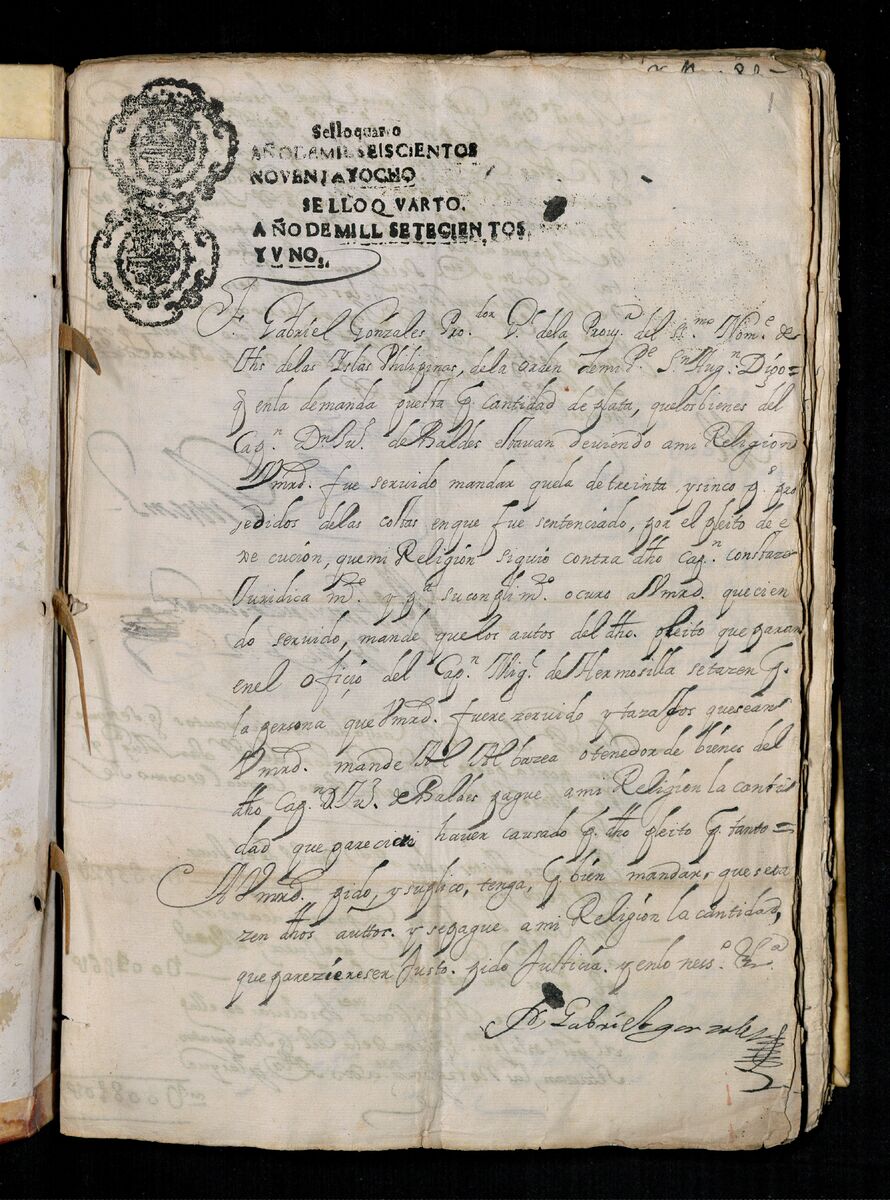 1
Selloquarto
AÑO DE MIL SEISCIENTOS
NOVENTA Y OCHO
SELLO QVARTO.
AÑO DE MILL SETECIENTOS,
Y VNO.
Fr. Gabriel Gonzales Pro.dor G.l dela Prov.a del St.mo Nom.e de
Jhs delas Yslas Philipinas, dela orden demi P.e S.n Aug.n Digo=
q̃ enla demanda puesta p.r cantidad de plata, quelosbienes del
Cap.n D.n Ju.o de Baldes estavan deviendo ami Religion
Vmrd. fue servido mandar quela de treinta, ysinco p.s pro
sedidos delas costas enque fue sentenciado, por el pleito de e
xe cución, quemi Religión siguio contra dho Cap.n constase
Juridica m.te y p.a sucomplim.to ocuro a Vmrd. quecien
do servido, mande que los autos del dho. pleito que paran
enel oficio del Cap.n Mig.l de Hermosilla setazen p.r
la persona que Vmrd. fuere zervido y tazados quesean
Vmrd. mande Al Albazea o tenedor de bienes del
dho Cap.n D. Ju.o de Baldes pague ami Religion la canti
dad que pareciere haver causado p.r dho pleito p.r tanto=
A Vmrd. pido, y suplico, tenga, p.r bien mandar, queseta
zen dhos auttos. y sepague a mi Religión la cantidad,
que pareziereser Justo. pido Justicia. y enlo neis.o &.a
Fr Gabriel gonzales